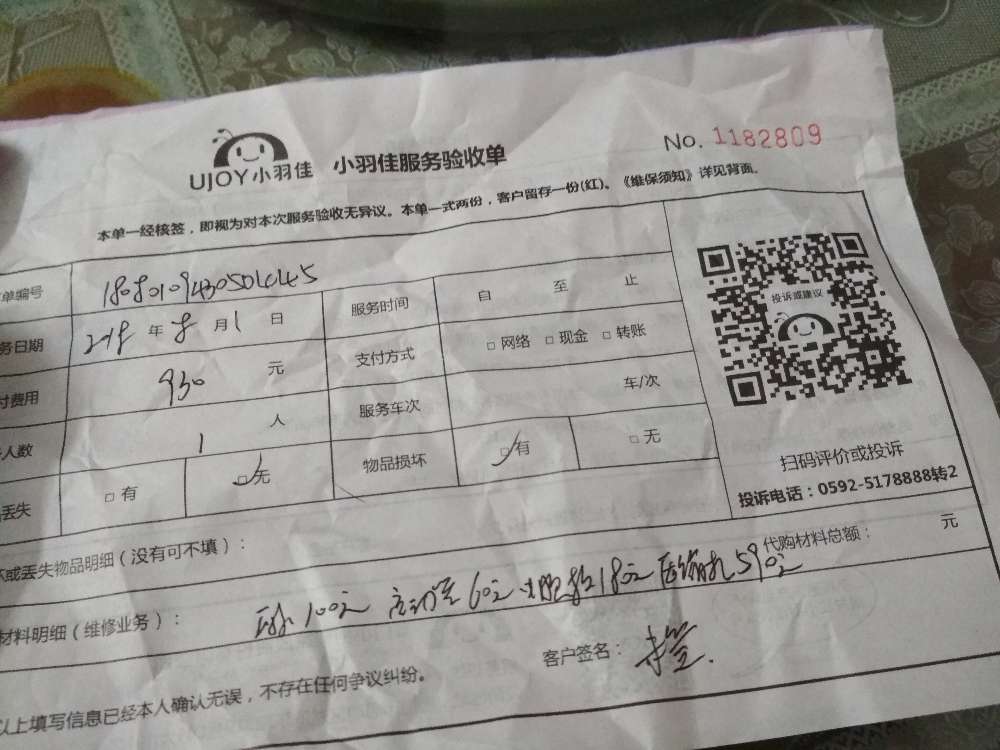 No. 1182809
UJOY小羽佳 小羽佳服务验收单
本单一经核签，即视为对本次服务验收无异议。本单一式两份，客户留存一份(红)。《维保须知》详见背面。
单编号
服务时间 自 至 止
务日期 年 8 月 1 日
支付方式 □ 网络 □ 现金 □ 转账
付费用 930 元
服务车次 车/次
人数 1 人
物品损坏 □ 有 □ 无
丢失 □ 有 □ 无
投诉或建议
扫码评价或投诉
投诉电话：0592-5178888转2
坏或丢失物品明细（没有可不填）：
代购材料总额： 元
材料明细（维修业务）： 100元 启动器 60元 180元 压缩机 590元
客户签名：
以上填写信息已经本人确认无误，不存在任何争议纠纷。